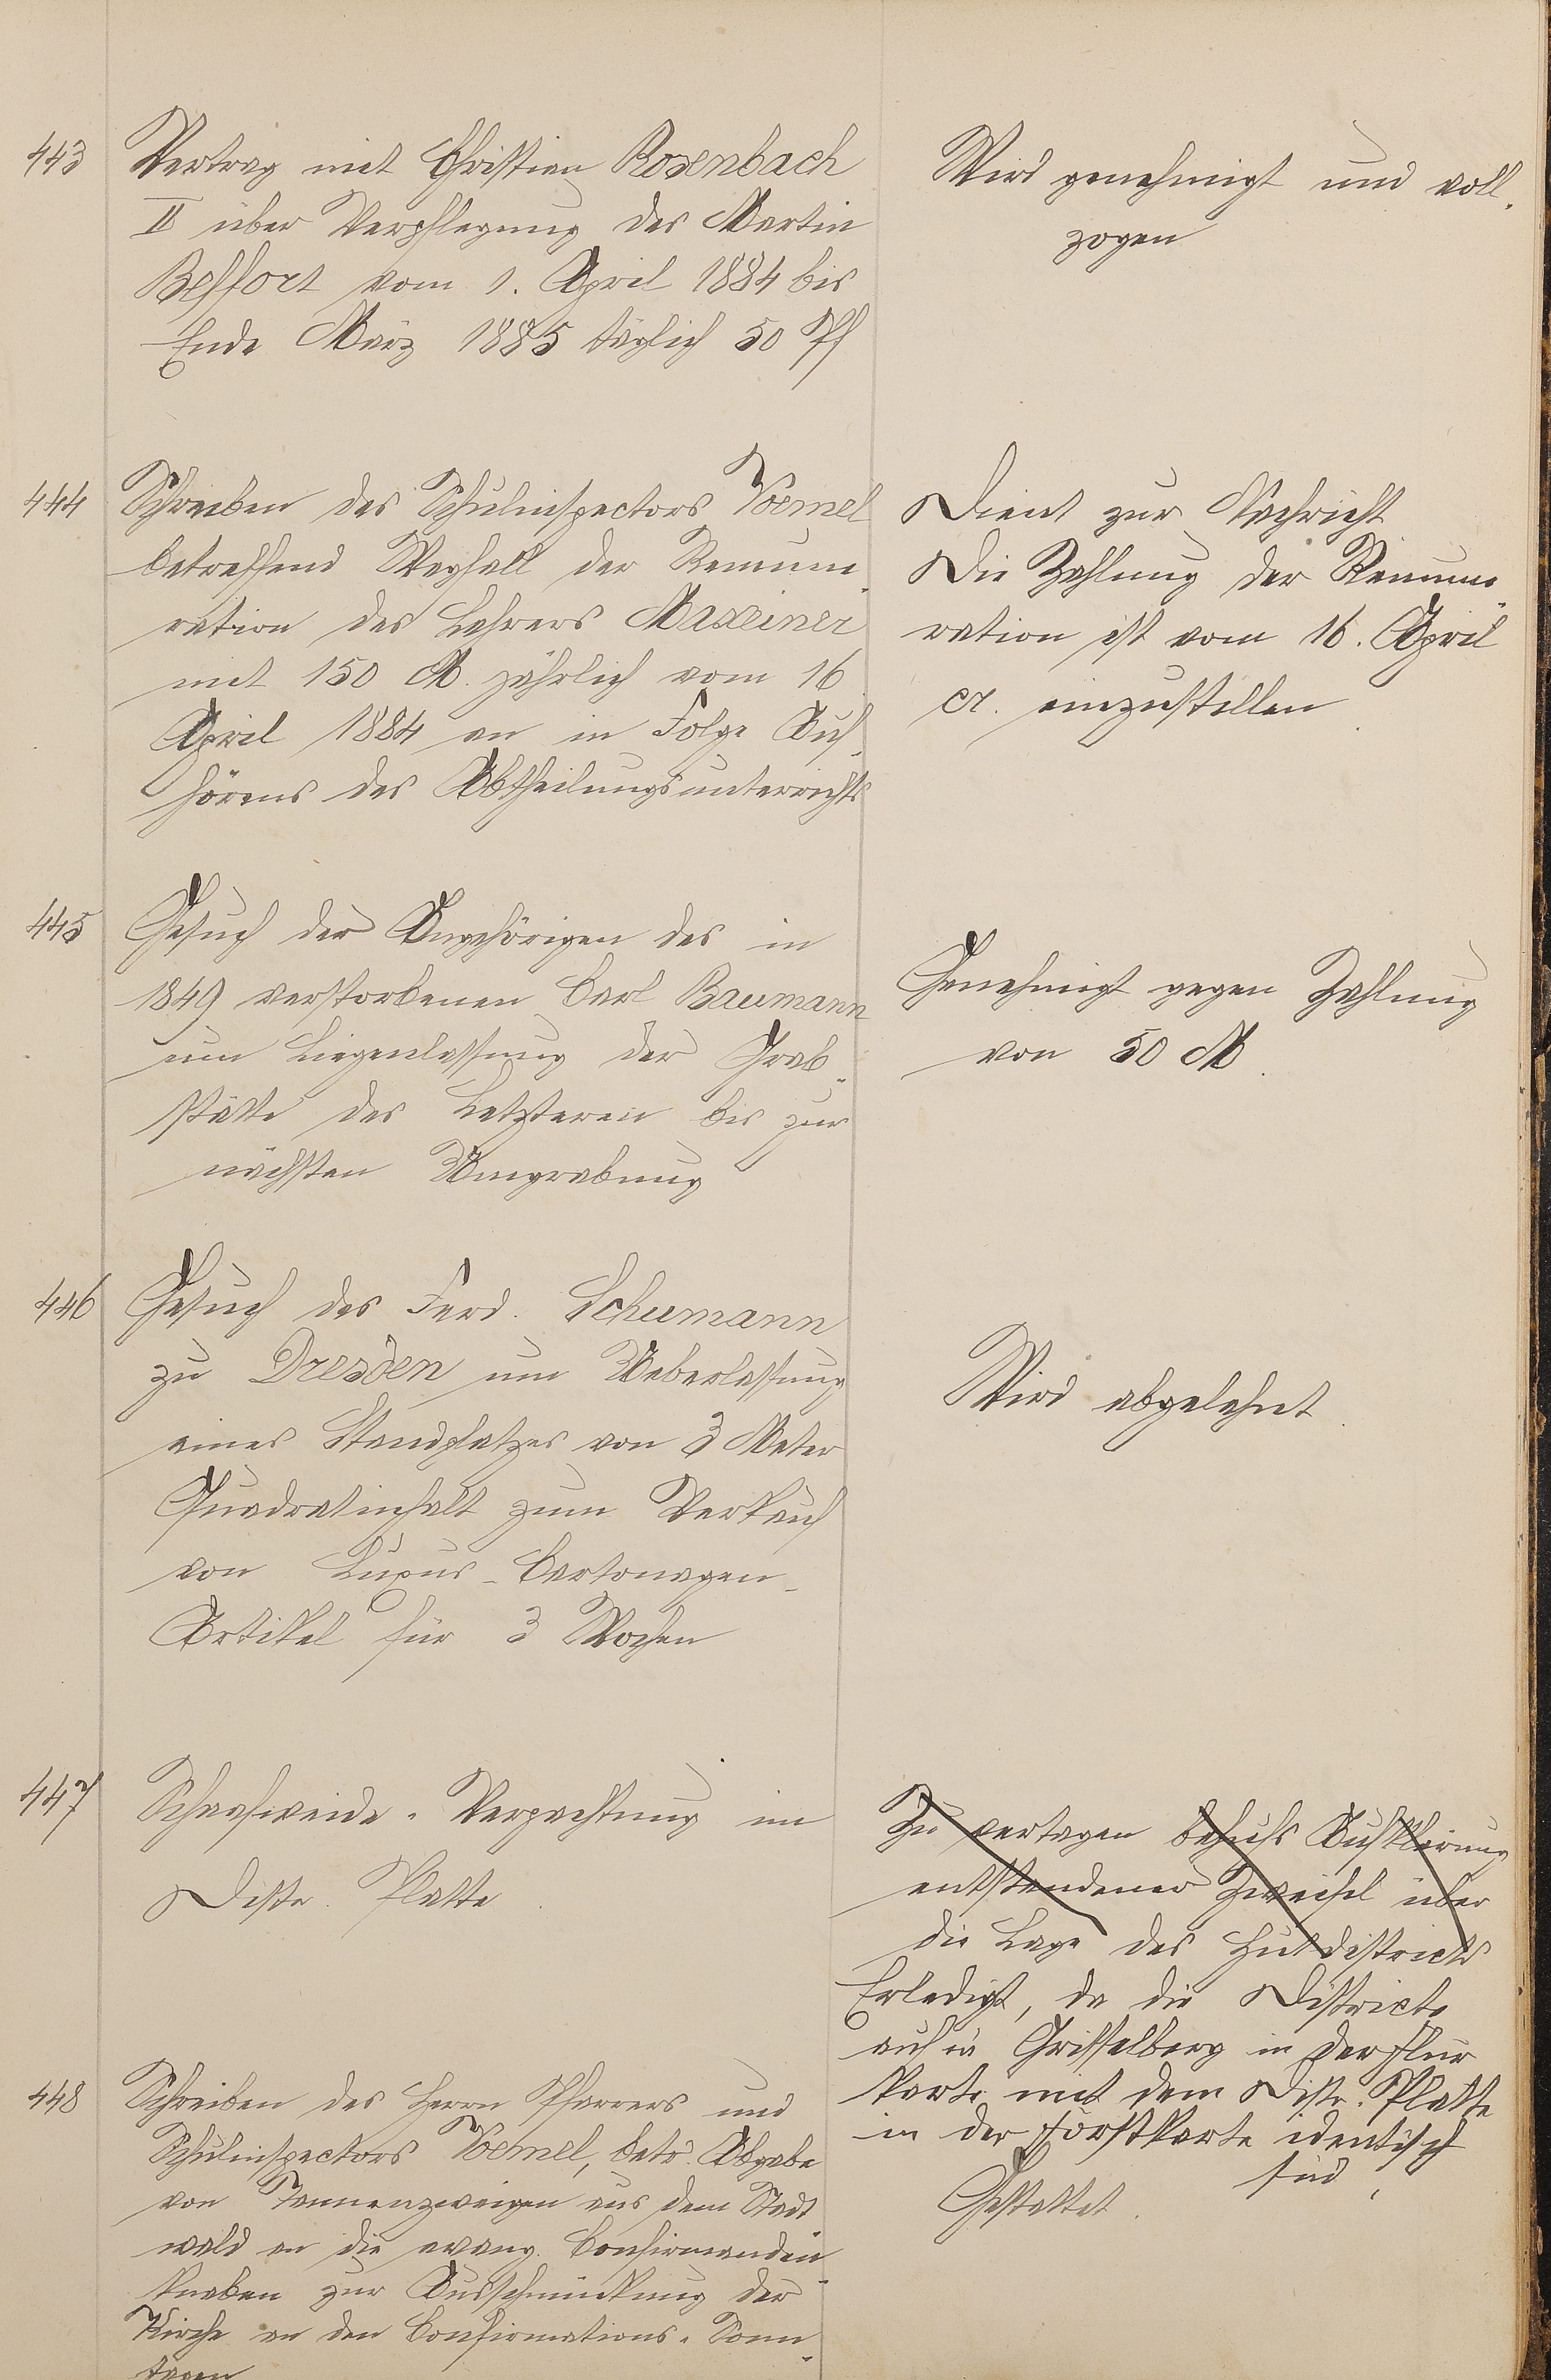 443
Vertrag mit Christian Rosenbach
II über Verpflegung des Martin
Belfort vom 1. April 1884 bis
Ende März 1885 täglich 50 Pf
Wird genehmigt und voll-
zogen
444
Schreiben des Schulinspectors Vömel
betreffend Wegfall der Remune-
ration des Lehrers Maxeiner
mit 150 M. jährlich vom 16
April 1884 an in Folge Auf-
hörens des Abtheilungsunterrichts
Dient zur Nachricht
Die Zahlung der Remune-
ration ist vom 16. April
cr. einzustellen
445
Gesuch der Angehörigen des in
1849 verstorbenen Carl Baumann
um Liegenlassung der Grab-
stätte des Letzteren bis zur
nächsten Umgrabung
Genehmigt gegen Zahlung
von 50 M.
446
Gesuch des Ferd. Schumann
zu Dresden um Ueberlassung
eines Standplatzes von 3 Meter
Quadratinhalt zum Verkauf
von Luxus-Cartonagen-
Artikel für 3 Wochen
Wird abgelehnt.
447
Schaafweide-Verpachtung im
Distr. Platte.
Zu vertagen behufs Aufklärung
entstandener Zweifel über
die Lage des Hutdistricts
Erledigt, da die Districte
auf'm Griffelberg in der Flur
karte mit dem Distr. Platte
in der Forstkarte identisch
sind,
448
Schreiben des Herrn Pfarrers und
Schulinspectors Vömel, betr. Abgabe
von Tannenzweigen aus dem Stadt
wald an die evang. Confirmanden-
knaben zur Ausschmückung der
Kirche an den Confirmations-Sonn-
tagen
Gestattet.